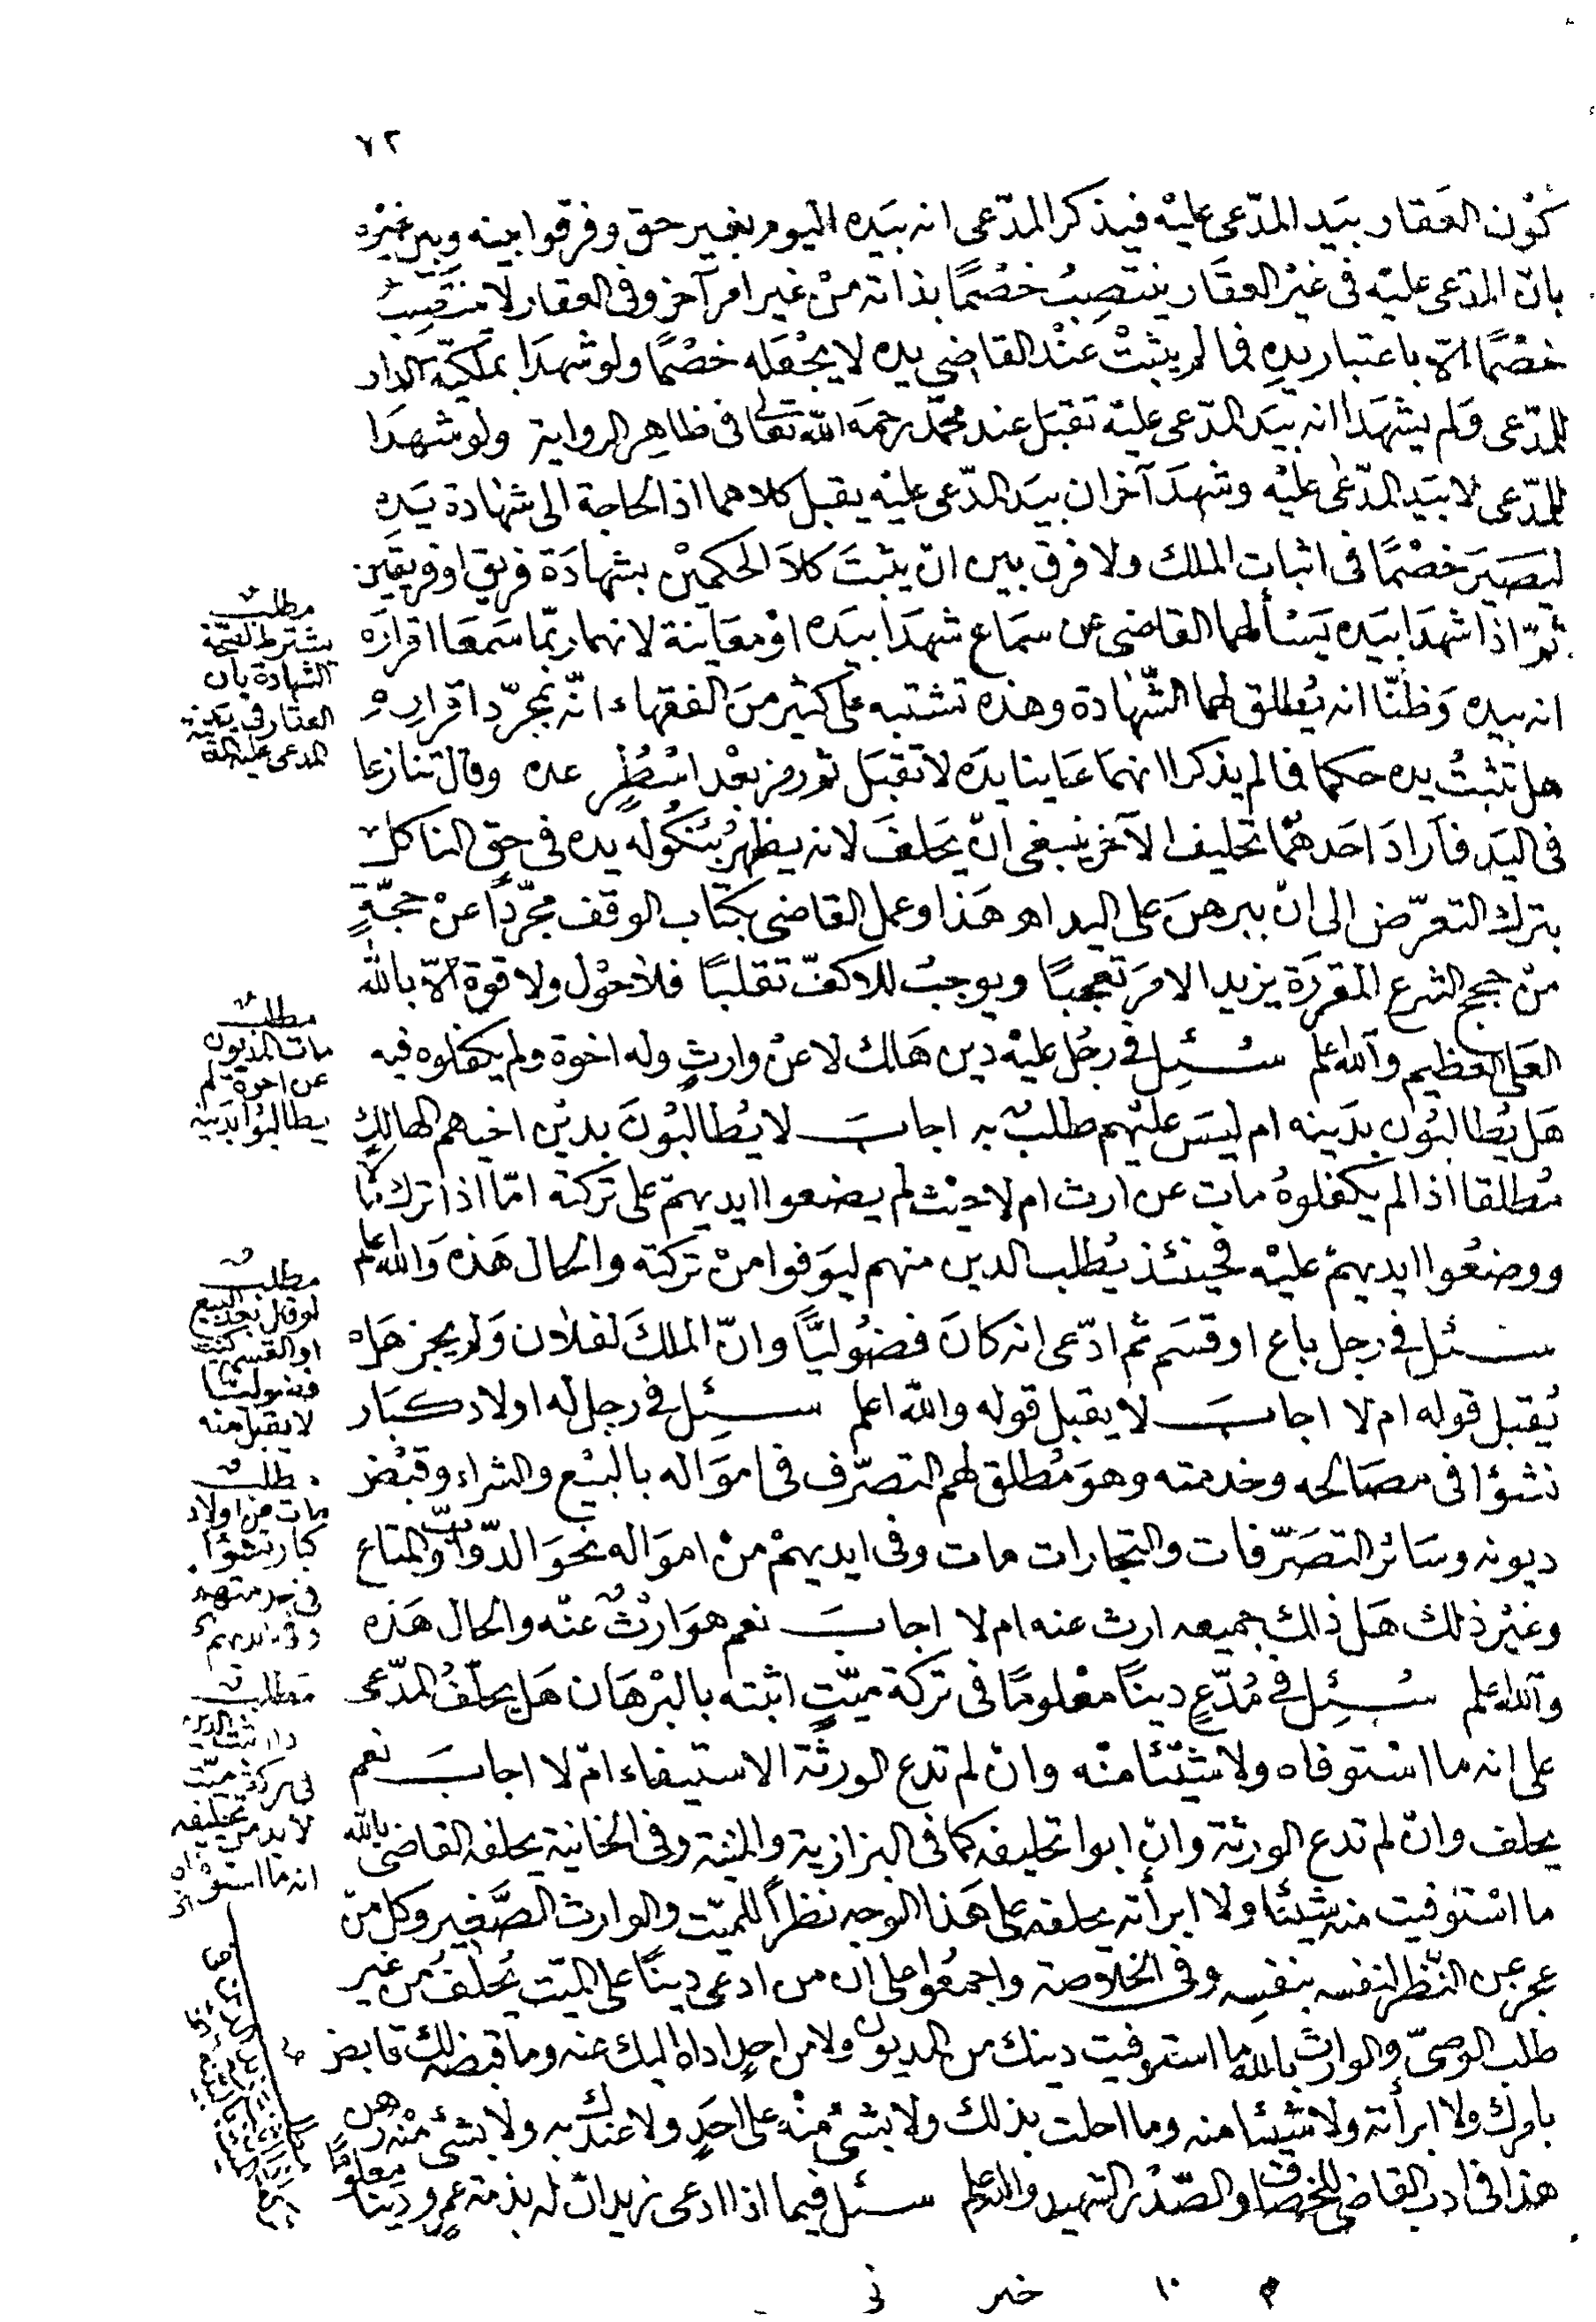 ٧٢
كون العقار بيد المدّعى عليه فيذكر المدّعى انه بيده اليوم بغير حق وفرقوا بينه وبين غيره
بانّ المدّعى عليه فى غير العقار ينتصب خصمًا بذاته من غير امر آخر وفى العقار لا ينتصب
خصمًا الّا باعتبار يده فما لم يثبت عند القاضى يده لا يجعله خصمًا ولو شهدا بملكيّة الدار
للمدّعى ولم يشهدا انه بيد المدّعى عليه تقبل عند محمّد رحمه اللّه تعالى فى ظاهر الرواية ولو شهدا
للمدّعى لا بيد المدّعى عليه وشهد آخران بيد المدّعى عليه يقبل كلاهما اذ الحاجة الى شهادة يده
ليصير خصمًا فى اثبات الملك ولا فرق بين ان يثبت كلا الحكمين بشهادة فريق او فريقين
ثمّ اذا شهدا بيده يسألهما القاضى عن سماع شهدا بيده او معاينة لانهما ربّما سمعا اقراره
انه بيده وظنّا انه يُطلق لهما الشّهادة وهذه تشتبه على كثير من الفقهاء انّه بمجرّد اقراره
هل تثبت يده حكما فما لم يذكرا انهما عاينا يده لا تقبل ثم رمز بعد اسطر عده وقال تنازعا
فى اليد فأراد احدهما تحليف الآخر ينبغى ان يحلف لانه يظهر بنكوله يده فى حق الناكل
بترك التعرّض الى ان يبرهن على اليد اهـ هذا وعمل القاضى بكتاب الوقف مجرّدًا عن حجّةٍ
من حجج الشرع المقررة يزيد الامر تعجبًا ويوجب للاكفّ تقلبًا فلا حول ولا قوة الّا باللّه
العلى العظيم واللّه اعلم سئل فى رجل عليه دين هالك لا عن وارث وله اخوة ولم يكفلوه فيه
هل يُطالبون بدينه ام ليس عليهم طلب به اجاب لا يُطالبون بدين اخيهم الهالك
مُطلقا اذا لم يكفلوه مات عن ارث ام لا حيث لم يضعوا ايديهم على تركته امّا اذا ترك مالا
ووضعوا ايديهم عليه فحينئذ يُطلب الدين منهم ليوفوا من تركته والحال هذه واللّه اعلم
سئل فى رجل باع او قسم ثم ادّعى انه كان فضوليًّا وانّ الملك لفلان ولم يجز هل
يُقبل قوله ام لا اجاب لا يقبل قوله واللّه اعلم سئل فى رجل له اولاد كبار
نشؤا فى مصالحه وخدمته وهو مُطلق لهم التصرّف فى امواله بالبيع والشراء وقبض
ديونه وسائر التصرّفات والتجارات مات وفى ايديهم من امواله نحو الدّوابّ والمتاع
وغير ذلك هل ذلك جميعه ارث عنه ام لا اجاب نعم هو ارث عنه والحال هذه
واللّه اعلم سئل فى مُدّعٍ دينًا معلومًا فى تركة ميّتٍ اثبته بالبرهان هل يحلّف المدّعى
على انه ما استوفاه ولا شيئًا منه وان لم تدع الورثة الاستيفاء ام لا اجاب نعم
يحلف وان لم تدع الورثة وان ابوا تحليفه كما فى البزازية والمنية وفى الخانية يحلفه القاضى باللّه
ما استوفيت منه شيئًا ولا ابرأته يحلفه على هذا الوجه نظرًا للميّت والوارث الصّغير وكل من
عجز عن النّظر لنفسه بنفسه وفى الخلاصة واجمعوا على ان من ادعى دينًا على الميّت يُحلف من غير
طلب الوصىّ والوارث باللّه ما استوفيت دينك من المديون ولا من احد اداه اليك عنه وما قبضه لك قابض
بامرك ولا ابرأته ولا شيئا منه وما احلت بذلك ولا بشئ منه على احد ولا عندك به ولا بشئ منه رهن
هذا فى ادب القاضى للخصاف والصّدر الشهيد واللّه اعلم سئل فيما اذا ادعى زيد ان له بذمة عمرو دينا معلوما
مطلب
يشترط لصحّة
الشهادة بان
العقار فى يد
المدعى عليه
مطلب
مات المديون
عن اخوة لم
يطالبوا بدينه
مطلب
لو قال بعد البيع
او القسمة كنت
فضوليّا
لا يقبل منه
مطلب
مات عن اولاد
كبار نشؤا
فى خدمته
وفى ايديهم
مطلب
فى تركة ميّت
لابد من تحليفه
انه ما استوفاه
خير